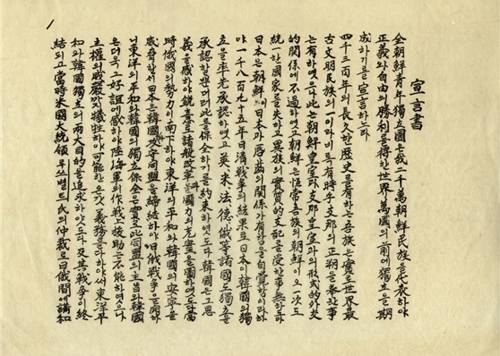 1
宣言書
全朝鮮青年獨立團은我二千萬朝鮮民族을代表하야
正義와自由의勝利를得한世界萬國의前에獨立을期
成하기를宣言하노라
四千三百年의長久한歷史를有하는吾族은實로世界最
古文明民族의一이라비록有時乎支那의正朔을奉한事
는有하엿으나此는朝鮮皇室과支那皇室과의形式的外交
的關係에不過하엿고朝鮮은恒常吾族의朝鮮이오一次도
統一한國家를失하고異族의實質的支配를受한事無하도다
日本은朝鮮이日本과唇齒의關係가有함을自覺함이라하
야一千八百九十五年日清戰爭의結果로日本이韓國의獨
立을率先承認하엿고英、米、法、德、俄等諸國도獨立을
承認할뿐더러此를保全하기를約束하엿도다韓國은그恩
義를感하야銳意로諸般改革과國力의充實을圖하엿도다當
時俄國의勢力이南下하야東洋의平和와韓國의安寧을
威脅할새日本은韓國과攻守同盟을締結하야日俄戰爭을開하
니東洋의平和와韓國의獨立保全은實로此同盟의主旨와韓國
은더욱그好誼에感하야陸海軍의作戰上援助는不能하엿스나
主權의威嚴까지犧牲하야可能한온갖義務를다하야써東洋平
和와韓國獨立의兩大目的을追求하얏도다及其戰爭이終
結되고當時米國大統領루쓰벨트氏의仲裁로日俄間에講和